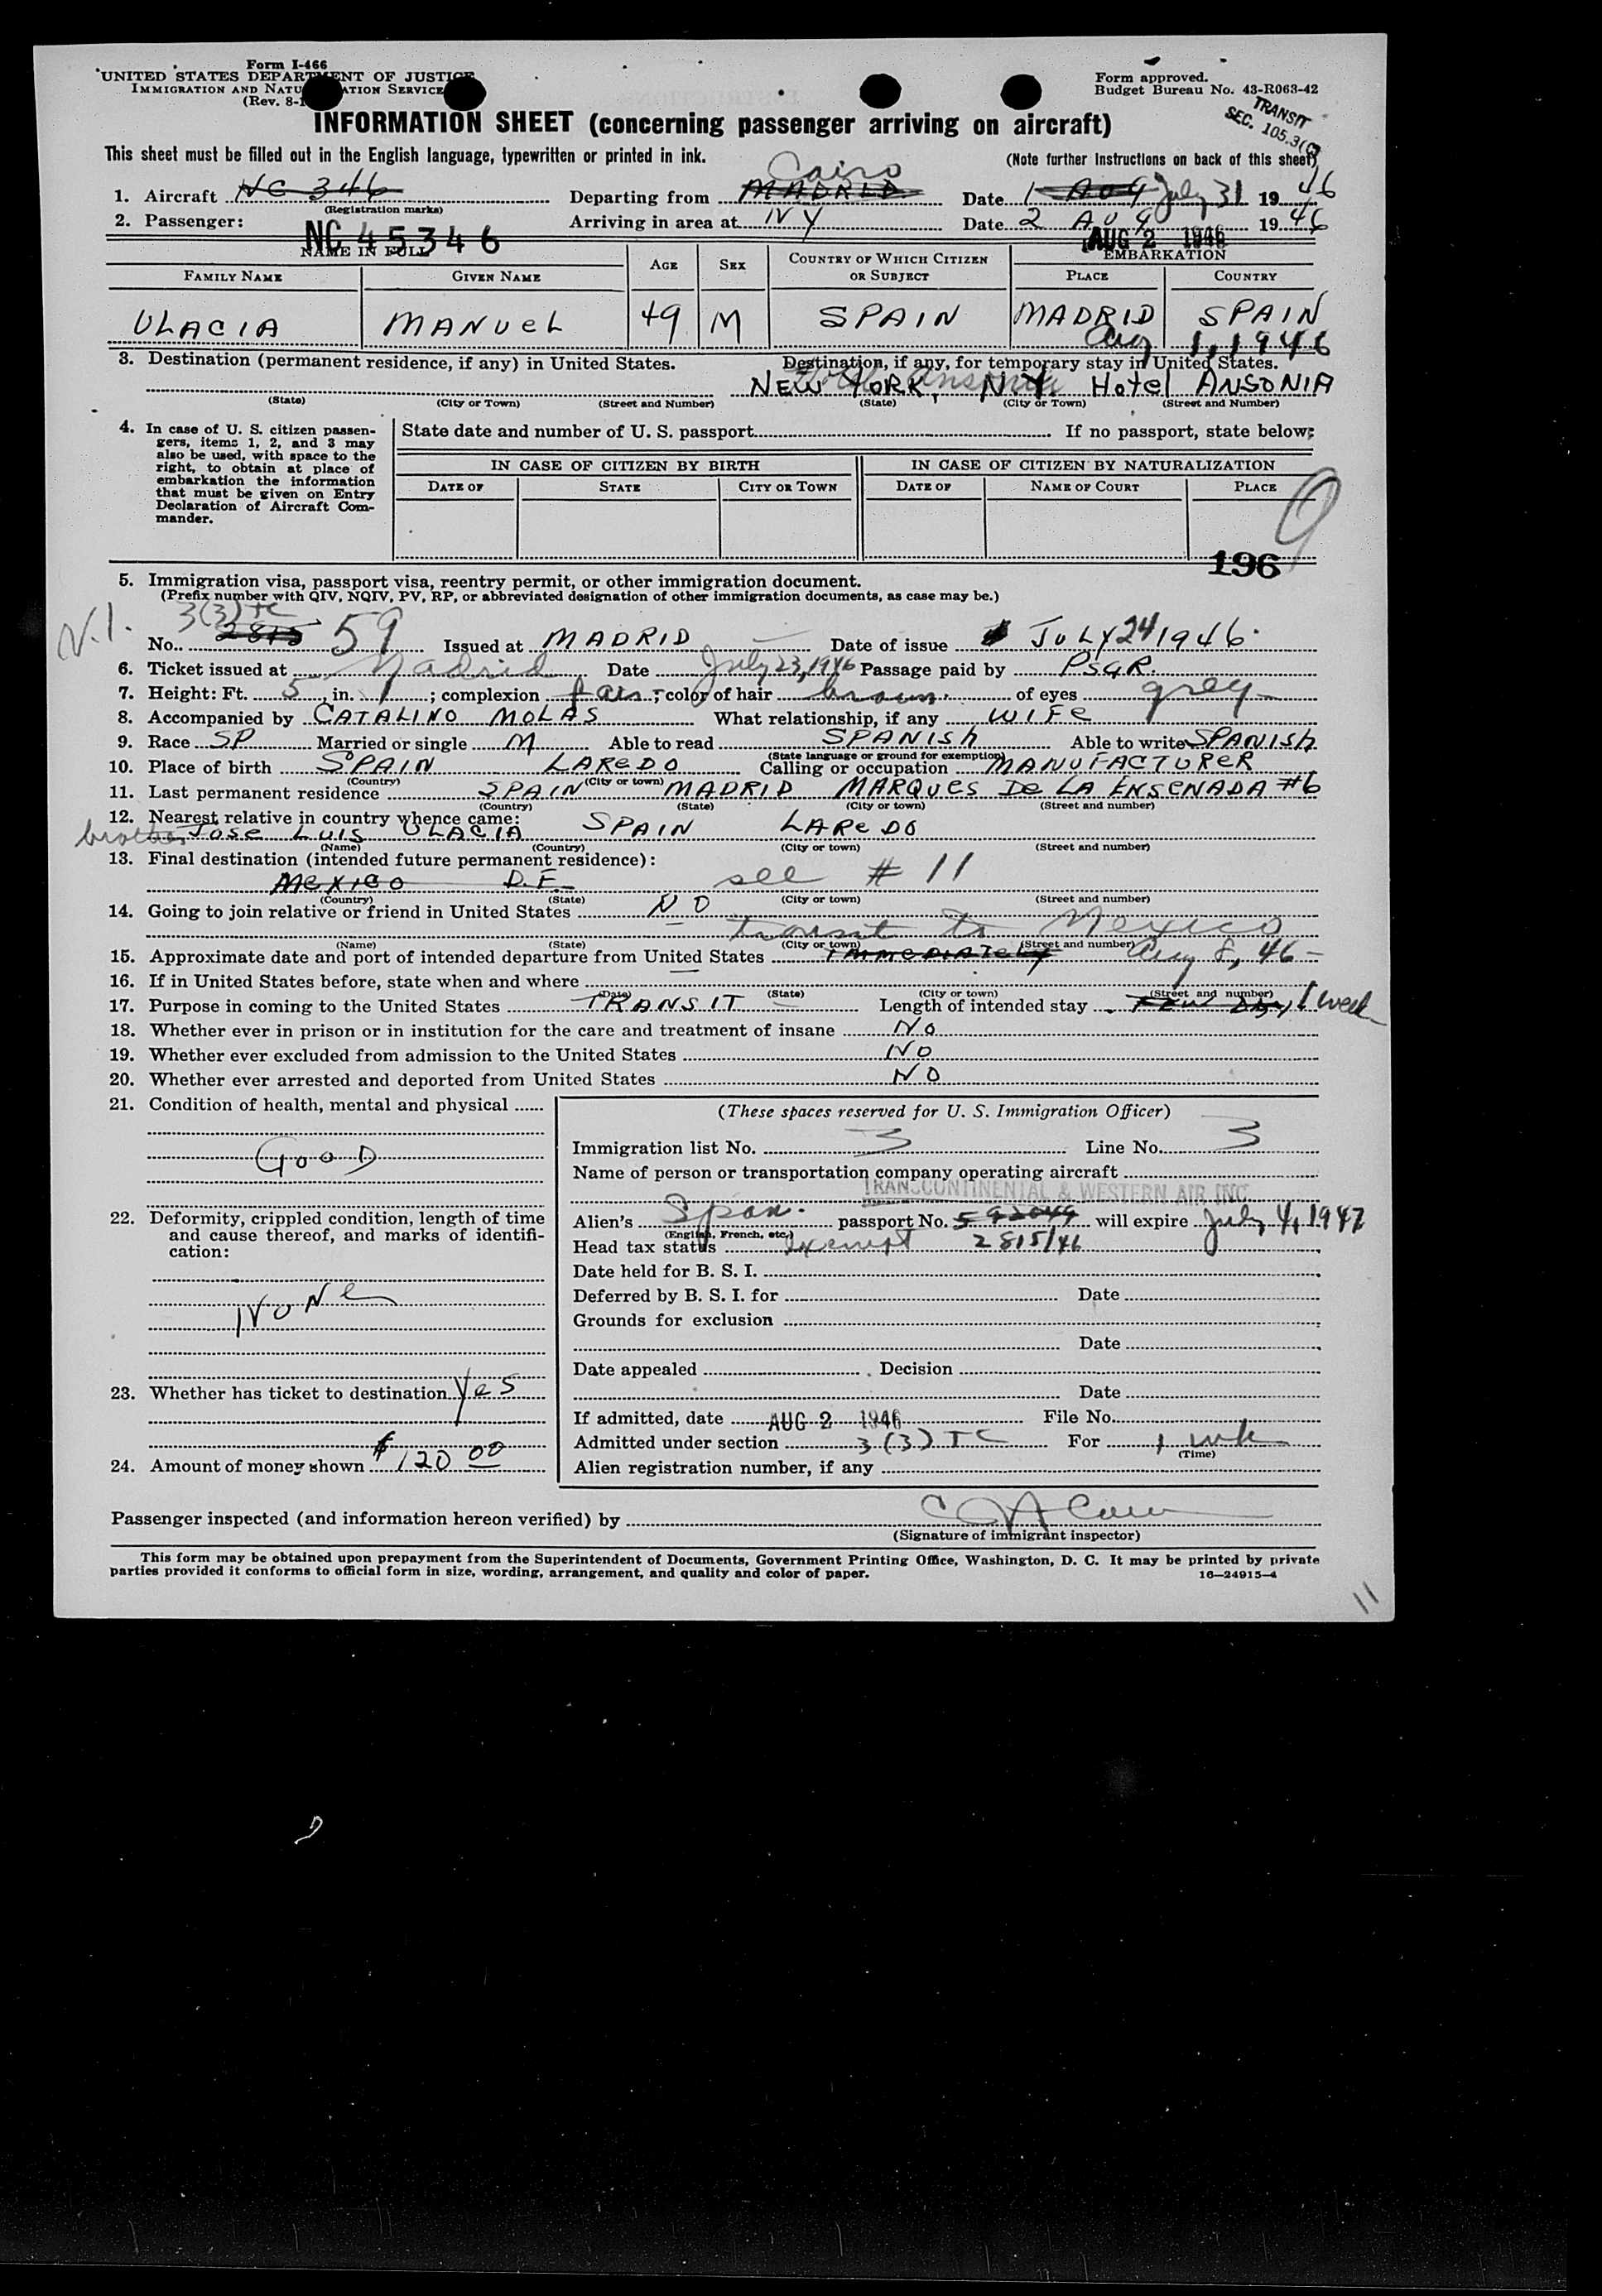 Form I-466
UNITED STATES DEPARTMENT OF JUSTICE
IMMIGRATION AND NATURALIZATION SERVICE
(Rev. 8-1
Form approved.
Budget Bureau No. 43-R063-42
TRANSIT
SEC. 105.3(C)
INFORMATION SHEET (concerning passenger arriving on aircraft)
This sheet must be filled out in the English language, typewritten or printed in ink.
(Note further instructions on back of this sheet)
Cairo
1. Aircraft NC 346 Departing from MADRID Date 1 AUG July 31 1946
(Registration marks)
2. Passenger: Arriving in area at NY Date 2 AUG 1946
NC 45346
AUG 2 1946
NAME IN FULL AGE SEX COUNTRY OF WHICH CITIZEN OR SUBJECT EMBARKATION
FAMILY NAME GIVEN NAME PLACE COUNTRY
ULACIA MANUEL 49 M SPAIN MADRID SPAIN
Aug 1, 1946
3. Destination (permanent residence, if any) in United States. Destination, if any, for temporary stay in United States.
NEW YORK, N.Y. Hotel ANSONIA
(State) (City or Town) (Street and Number) (State) (City or Town) (Street and Number)
4. In case of U. S. citizen passengers, items 1, 2, and 3 may also be used, with space to the right, to obtain at place of embarkation the information that must be given on Entry Declaration of Aircraft Commander.
State date and number of U. S. passport If no passport, state below:
IN CASE OF CITIZEN BY BIRTH IN CASE OF CITIZEN BY NATURALIZATION
DATE OF STATE CITY OR TOWN DATE OF NAME OF COURT PLACE
9
196
5. Immigration visa, passport visa, reentry permit, or other immigration document.
(Prefix number with QIV, NQIV, PV, RP, or abbreviated designation of other immigration documents, as case may be.)
N.I. 3(3) TC
No. 2815 59 Issued at MADRID Date of issue JULY 24 1946.
6. Ticket issued at Madrid Date July 23, 1946 Passage paid by PSGR.
7. Height: Ft. 5 in. 1 ; complexion fair ; color of hair brown of eyes grey
8. Accompanied by CATALINO MOLAS What relationship, if any WIFE
9. Race SP Married or single M Able to read SPANISH Able to write SPANISH
(State language or ground for exemption)
10. Place of birth SPAIN LAREDO Calling or occupation MANUFACTURER
(Country) (City or town)
11. Last permanent residence SPAIN MADRID MARQUES DE LA ENSENADA #6
(Country) (State) (City or town) (Street and number)
12. Nearest relative in country whence came:
brother JOSE LUIS ULACIA SPAIN LAREDO
(Name) (Country) (City or town) (Street and number)
13. Final destination (intended future permanent residence):
MEXICO D.F. see # 11
(Country) (State) (City or town) (Street and number)
14. Going to join relative or friend in United States NO
transit to Mexico
(Name) (State) (City or town) (Street and number)
15. Approximate date and port of intended departure from United States IMMEDIATELY Aug 8, 46
16. If in United States before, state when and where
(Date) (State) (City or town) (Street and number)
17. Purpose in coming to the United States TRANSIT Length of intended stay FEW DAY 1 week
18. Whether ever in prison or in institution for the care and treatment of insane NO
19. Whether ever excluded from admission to the United States NO
20. Whether ever arrested and deported from United States NO
21. Condition of health, mental and physical
GOOD
22. Deformity, crippled condition, length of time and cause thereof, and marks of identification:
NONE
23. Whether has ticket to destination Yes
24. Amount of money shown $120 00
(These spaces reserved for U. S. Immigration Officer)
Immigration list No. 3 Line No. 3
Name of person or transportation company operating aircraft
TRANSCONTINENTAL & WESTERN AIR INC
Alien's Span. passport No. 592049 will expire July 4, 1947
(English, French, etc.)
Head tax status exempt 2815/46
Date held for B. S. I.
Deferred by B. S. I. for Date
Grounds for exclusion
Date
Date appealed Decision
Date
If admitted, date AUG 2 1946 File No.
Admitted under section 3(3) TC For 1 wk
(Time)
Alien registration number, if any
Passenger inspected (and information hereon verified) by
(Signature of immigrant inspector)
This form may be obtained upon prepayment from the Superintendent of Documents, Government Printing Office, Washington, D. C. It may be printed by private
parties provided it conforms to official form in size, wording, arrangement, and quality and color of paper.
16—24915-4
11